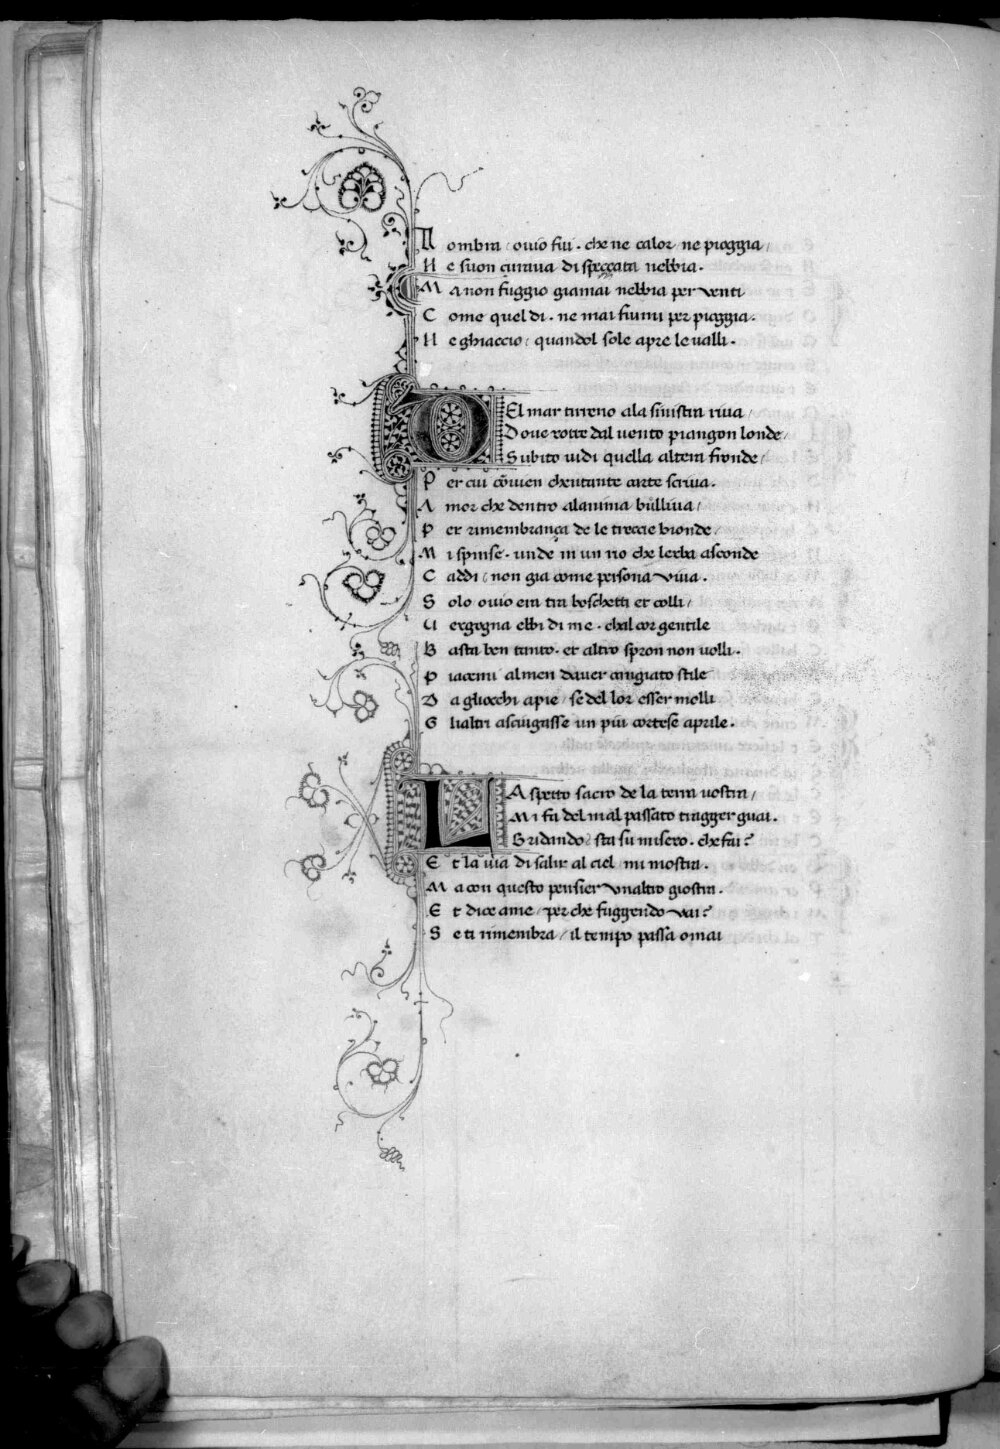 N ombra ouio fui . che ne calor / ne pioggia /
N e suon curaua di spezzata nebbia .
M a non fuggio giamai nebbia per venti
C ome quel di . ne mai fiumi per pioggia .
N e ghiaccio / quandol sole apre le valli .
DEl mar tirreno ala sinistra riua /
Doue rotte dal uento piangon londe /
Subito uidi quella altera fronde /
P er cui cõuien chentante carte scriua .
A mor che dentro alanima bulliua /
P er rimembrança de le treccie bionde /
M i spinse . unde in un rio che lerba asconde
C addi / non gia come persona viua .
S olo ouio era tra boschetti et colli /
U ergogna ebbi di me . chal cor gentile
B asta ben tanto . et altro spron non uolli .
P iacemi almen dauer cangiato stile
D a gliocchi apie / se del lor esser molli
G lialtri asciugasse un piu cortese aprile .
LAspetto sacro de la terra uostra /
Mi fa del mal passato tragger guai .
Gridando / sta su misero . che fai ?
E t la uia di salir al ciel mi mostra .
M a con questo pensier vnaltro giostra .
E t dice ame / per che fuggendo vai ?
S e ti rimembra / il tempo passa omai